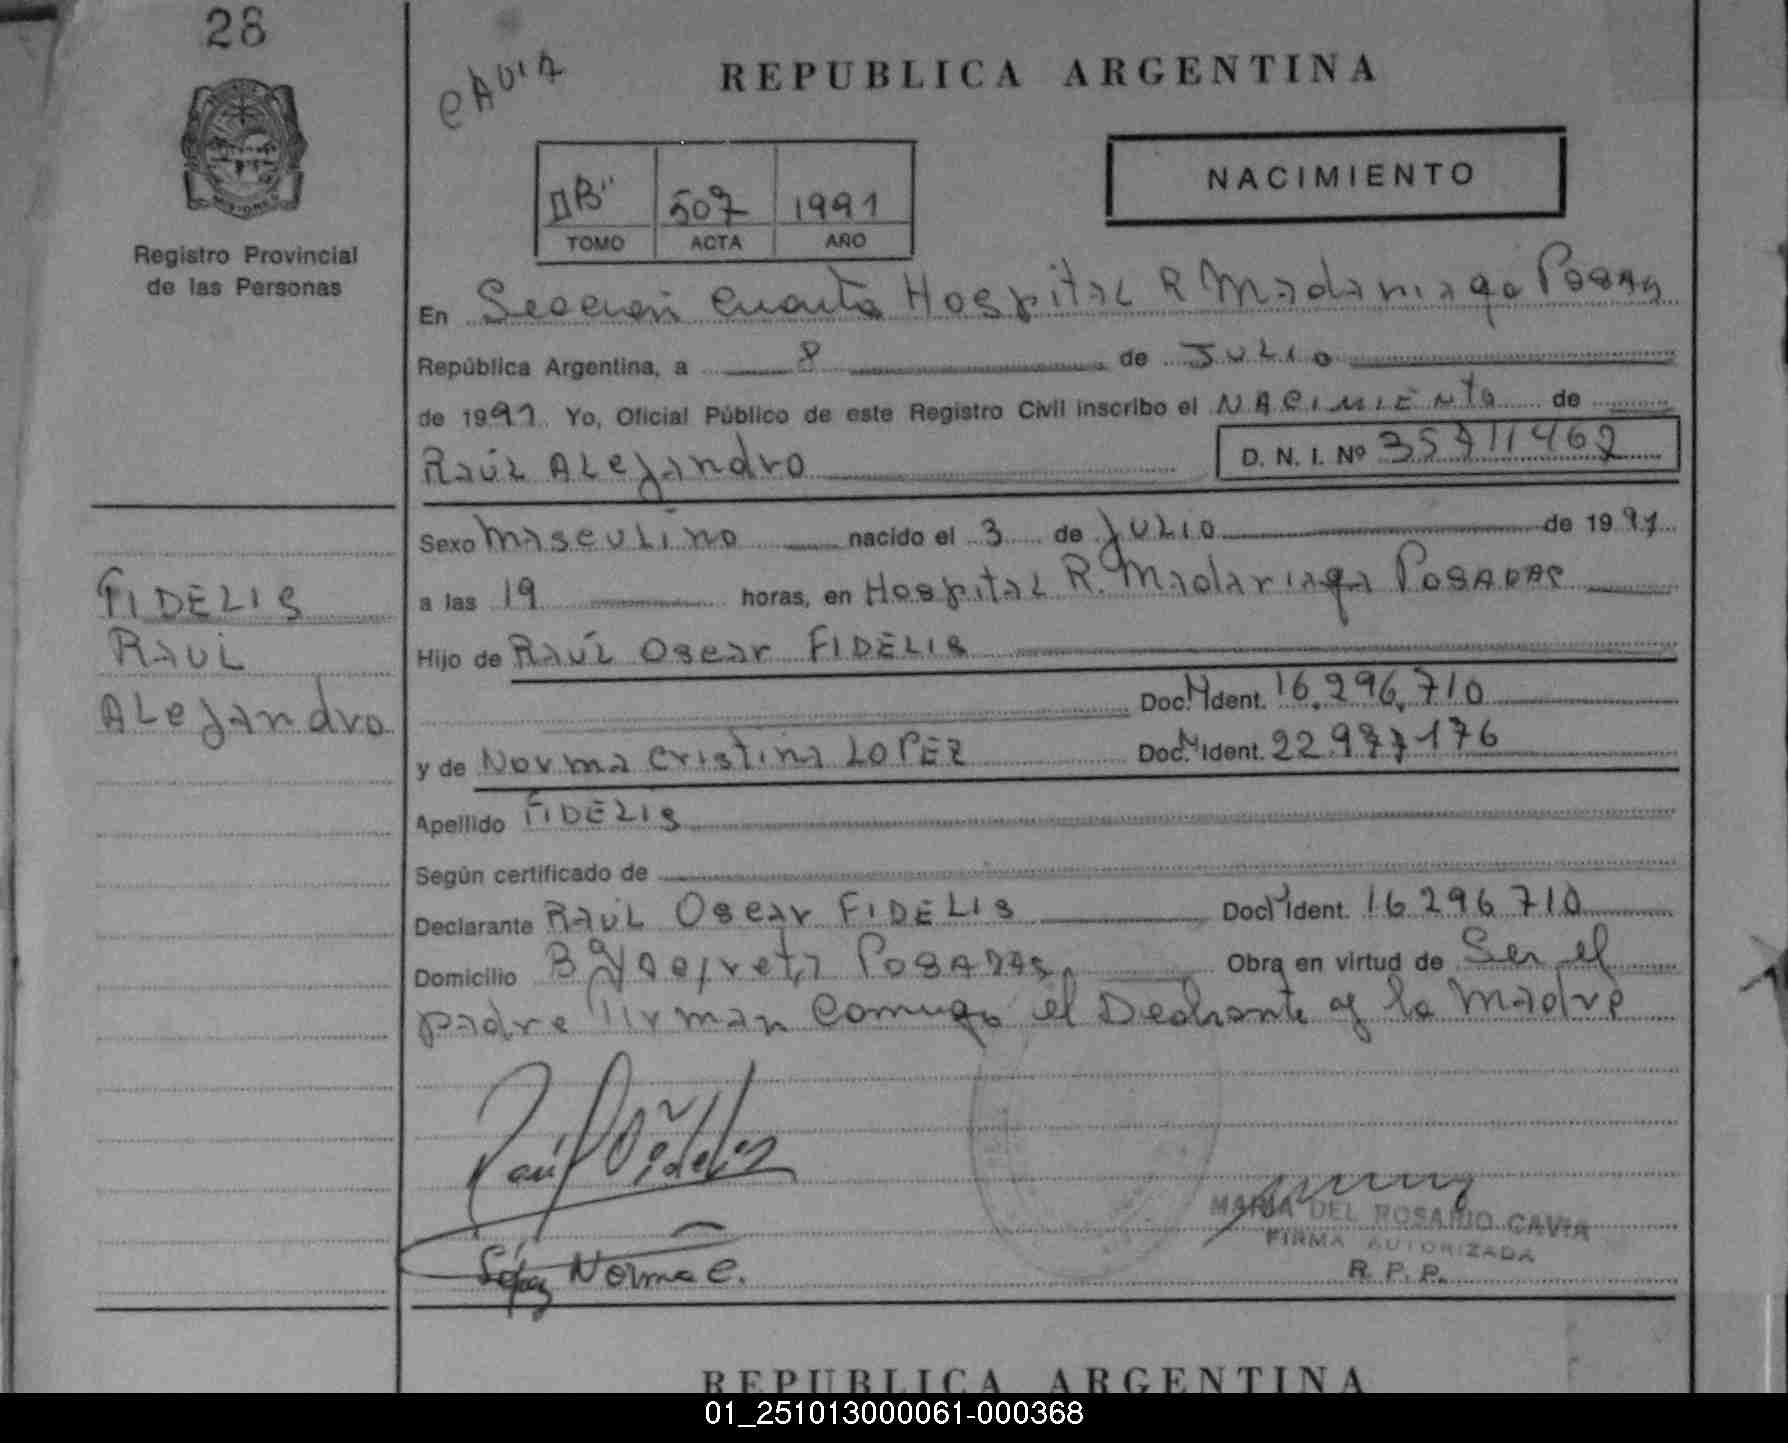 28
CAVIA
REPUBLICA ARGENTINA
NACIMIENTO
II "B" 507 1991
TOMO ACTA AÑO
Registro Provincial
de las Personas
En Sección Cuarta Hospital R Madariaga Posadas
República Argentina, a 8 de JULIO
de 1991. Yo, Oficial Público de este Registro Civil inscribo el NACIMIENTO de
RAÚL ALEJANDRO D. N. I. Nº 35711462
Sexo Masculino nacido el 3 de JULIO de 1991
a las 19 horas, en Hospital R. Madariaga POSADAS
FIDELIS
RAUL
ALEJANDRO
Hijo de RAÚL Oscar FIDELIS
Doc. N Ident. 16.296.710
y de Norma Cristina LOPEZ Doc. N Ident. 22.977.176
Apellido FIDELIS
Según certificado de
Declarante RAÚL Oscar FIDELIS Doc N Ident. 16296710
Domicilio Bº Yacyretá POSADAS Obra en virtud de Ser el
padre Firman Conmigo el Declarante y la Madre
Raúl Fidelis
López Norma C.
MARIA DEL ROSARIO CAVIA
FIRMA AUTORIZADA
R. P. P.
REPUBLICA ARGENTINA
01_251013000061-000368